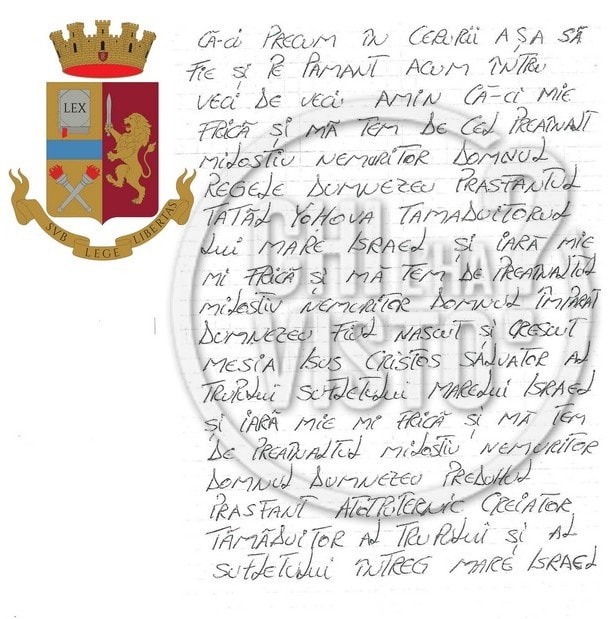 LEX
SVB LEGE LIBERTAS
CĂ-CI PRECUM ÎN CERURII AȘA SĂ
FIE ȘI PE PAMANT ACUM ÎNTRU
VECI DE VECI AMIN CĂ-CI MIE
FRICĂ ȘI MĂ TEM DE CEL PREAINALT
MILOSTIV NEMURITOR DOMNUL
REGELE DUMNEZEU PRASFANTUL
TATĂL YOHOVA TAMADUITORUL
LUI MARE ISRAEL ȘI IARĂ MIE
MI FRICĂ ȘI MĂ TEM DE PREAINALTUL
MILOSTIV NEMURITOR DOMNUL ÎMPARAT
DUMNEZEU FIUL NASCUT ȘI CRESCUT
MESIA ISUS CRISTOS SALVATOR AL
TRUPULUI SUFLETULUI MARELUI ISRAEL
ȘI IARĂ MIE MI FRICĂ ȘI MĂ TEM
DE PREAINALTUL MILOSTIV NEMURITOR
DOMNUL DUMNEZEU PREDUHUL
PRASFANT ATOTPUTERNIC CREIATOR
TĂMĂDUITOR AL TRUPULUI ȘI AL
SUFLETULUI ÎNTREG MARE ISRAEL
CHI
L'HA
VISTO?